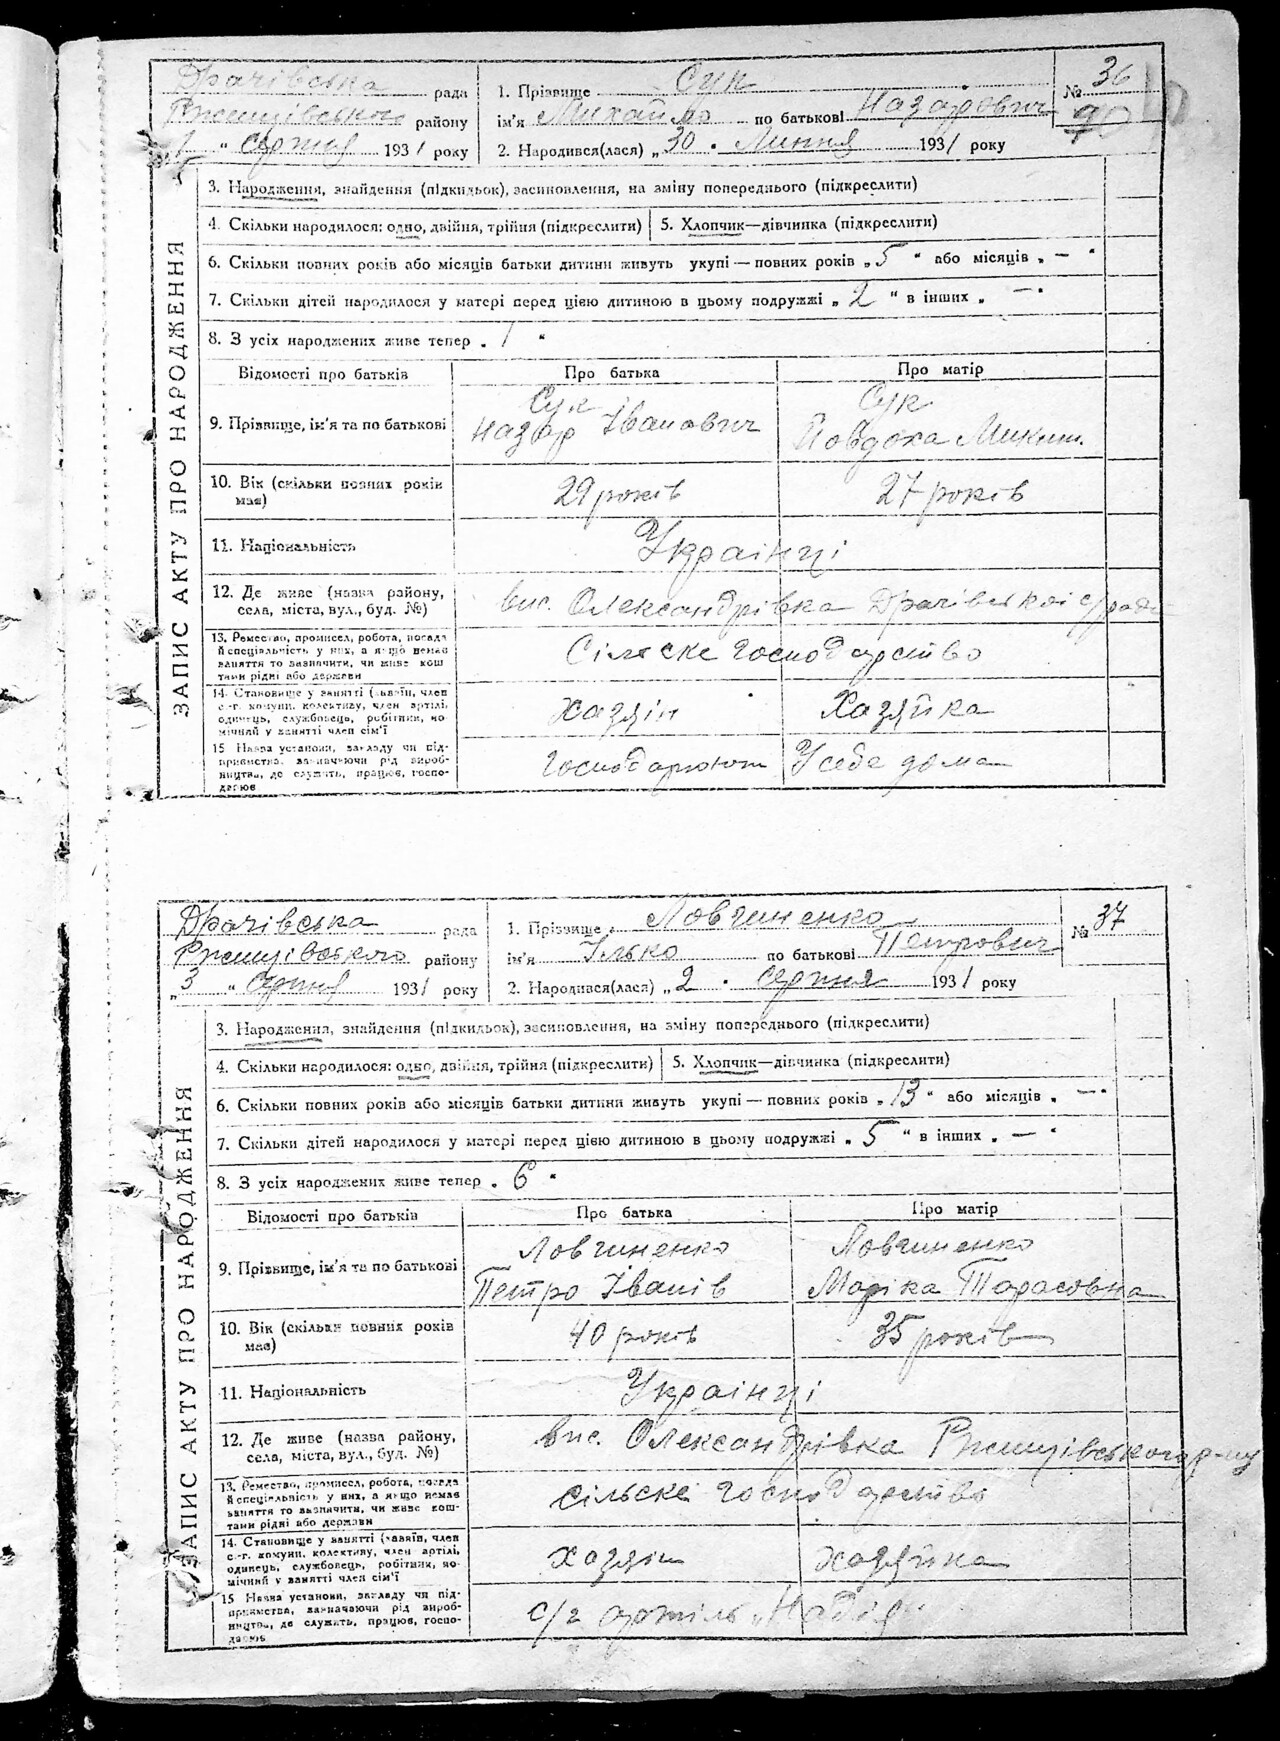 Драчівська рада
Ржищівського району
„1 “ серпня 1931 року
1. Прізвище Сук
ім'я Михайло по батькові Назарович
2. Народився(лася) „30 . Липня 1931 року
№ 36
ЗАПИС АКТУ ПРО НАРОДЖЕННЯ
3. Народження, знайдення (підкидьок), засиновлення, на зміну попереднього (підкреслити)
4. Скільки народилося: одно, двійня, трійня (підкреслити) 5. Хлопчик—дівчинка (підкреслити)
6. Скільки повних років або місяців батьки дитини живуть укупі — повних років „5 “ або місяців „ — “
7. Скільки дітей народилося у матері перед цією дитиною в цьому подружжі „ 2 “ в інших „ — “
8. З усіх народжених живе тепер „ 1 “
Відомості про батьків Про батька Про матір
9. Прізвище, ім'я та по батькові
Сук
Назар Іванович
Сук
Йовдоха Микит.
10. Вік (скільки повних років
має)
29 років 27 років
11. Національність Українці
12. Де живе (назва району,
села, міста, вул., буд. №)
вис. Олександрівка Драчівської с/ради
13. Ремество, промисел, робота, посада
й спеціальність у них, а якщо немає
заняття то зазначити, чи живе кош
тами рідні або держави
Сільске господарство
14. Становище у занятті (хазяїн, член
с.-г. комуни, колективу, член артілі,
одинець, службовець, робітник, по-
мічний у занятті член сім'ї
хазяін Хазяйка
15 Назва установи, закладу чи під-
приємства, зазначаючи рід вироб-
ництва, де служить, працює, госпо-
дарює
Господарюють У себе дома
Драчівська рада
Ржищівського району
„3 “ серпня 1931 року
1. Прізвище Ловчиненко
ім'я Ілько по батькові Петрович
2. Народився(лася) „2 . серпня 1931 року
№ 37
ЗАПИС АКТУ ПРО НАРОДЖЕННЯ
3. Народження, знайдення (підкидьок), засиновлення, на зміну попереднього (підкреслити)
4. Скільки народилося: одно, двійня, трійня (підкреслити) 5. Хлопчик—дівчинка (підкреслити)
6. Скільки повних років або місяців батьки дитини живуть укупі — повних років „13 “ або місяців „ — “
7. Скільки дітей народилося у матері перед цією дитиною в цьому подружжі „ 5 “ в інших „ — “
8. З усіх народжених живе тепер „ 6 “
Відомості про батьків Про батька Про матір
9. Прізвище, ім'я та по батькові
Ловчиненко
Петро Іванів
Ловчиненко
Маріка Тарасовна
10. Вік (скільки повних років
має)
40 років 35 років
11. Національність Українці
12. Де живе (назва району,
села, міста, вул., буд. №)
вис. Олександрівка Ржищівського р-ну
13. Ремество, промисел, робота, посада
й спеціальність у них, а якщо немає
заняття то зазначити, чи живе кош-
тами рідні або держави
сільске господарство
14. Становище у занятті (хазяїн, член
с.-г. комуни, колективу, член артілі,
одинець, службовець, робітник, по-
мічний у занятті член сім'ї
хазяін хазяйка
15 Назва установи, закладу чи під-
приємства, зазначаючи рід вироб-
ництва, де служить, працює, госпо-
дарює
с/г артіль „Надія“